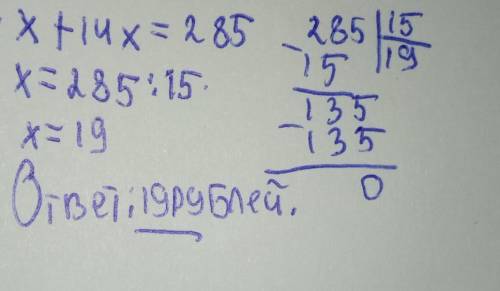 x+14x=285
x=285:15.
x=19
Ответ: 19 рублей.
285|15
-15 |19
135
-135
0